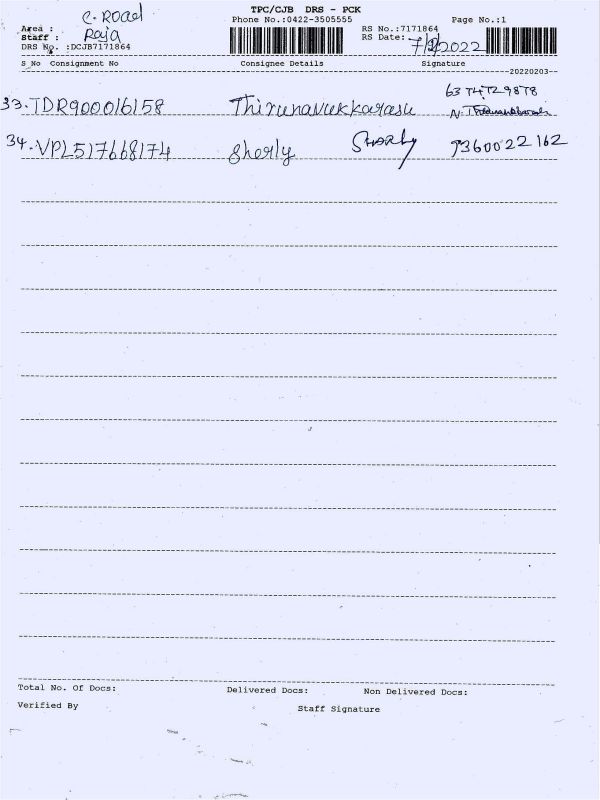 TPC/CJB DRS - PCK
C. Road
Phone No.:0422-3505555
Page No.:1
Area :
RS No.:7171864
Staff : Raja
RS Date: 7/2/2022
DRS No. :DCJB7171864
S No Consignment No Consignee Details Signature
20220203
33. TDR900016158 Thirunavukkarasu
34. VPL517668174 Sherly Sherly 9360022162
Total No. Of Docs: Delivered Docs: Non Delivered Docs:
Verified By Staff Signature